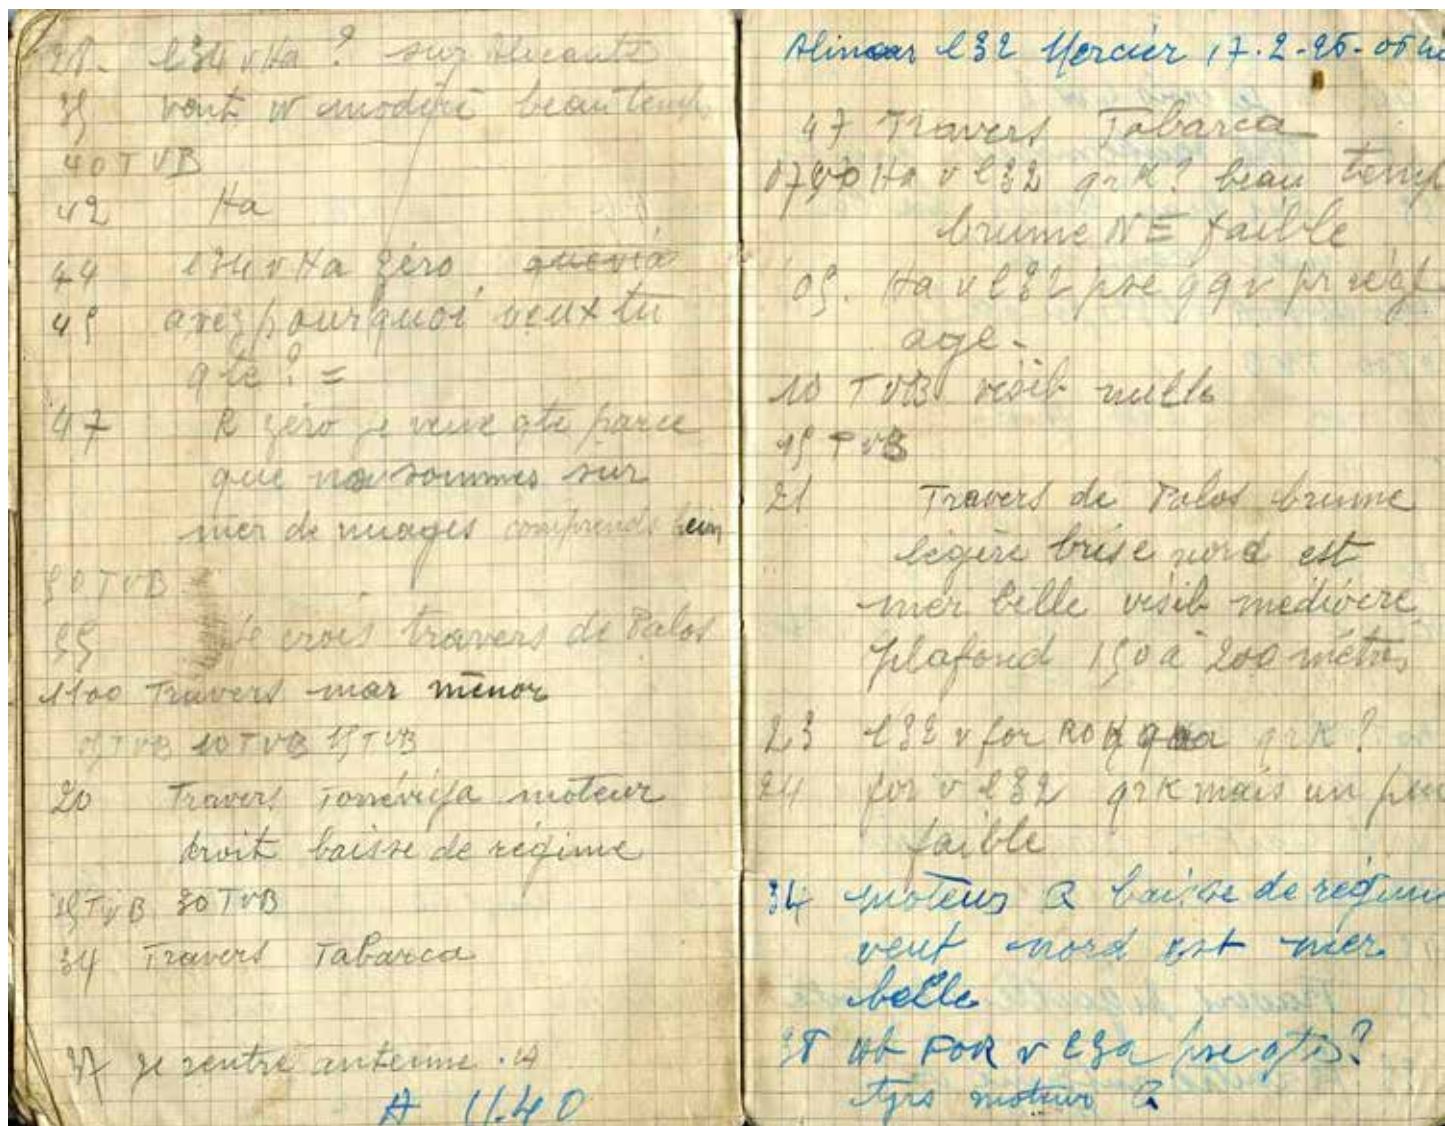 l34 v Ha ? sur Alicante
35 vent W modéré beau temps
40 TVB
42 Ha
44 l34 v Ha zéro
45 avez pourquoi veux tu
qte ? =
47 R zéro je veux qte parce
que nous sommes sur
mer de nuages comprends bien
50 TVB
55 je crois travers de Palos
1100 Travers mar menor
05 TVB 10 TVB 15 TVB
20 Travers Torrévéja moteur
droit baisse de régime
25 TVB 30 TVB
34 Travers Tabarca
37 je rentre antenne
A 11.40
l32 Mercier 17.2-
47 Travers Tabarca
Ha v l32 qrk? beau temp
brume NE faible
05. Ha v l32 pse
age-
10 TVB visib nulle
15 TVB
21 Travers de Palos brume
légère brise nord est
mer belle visib médiocre
plafond 150 à 200 mètres
23 l32 v for qrk ?
24 for v l32 qrk mais un peu
faible
34 moteur baisse de régime
vent nord est mer
belle
FOR v pse
moteur